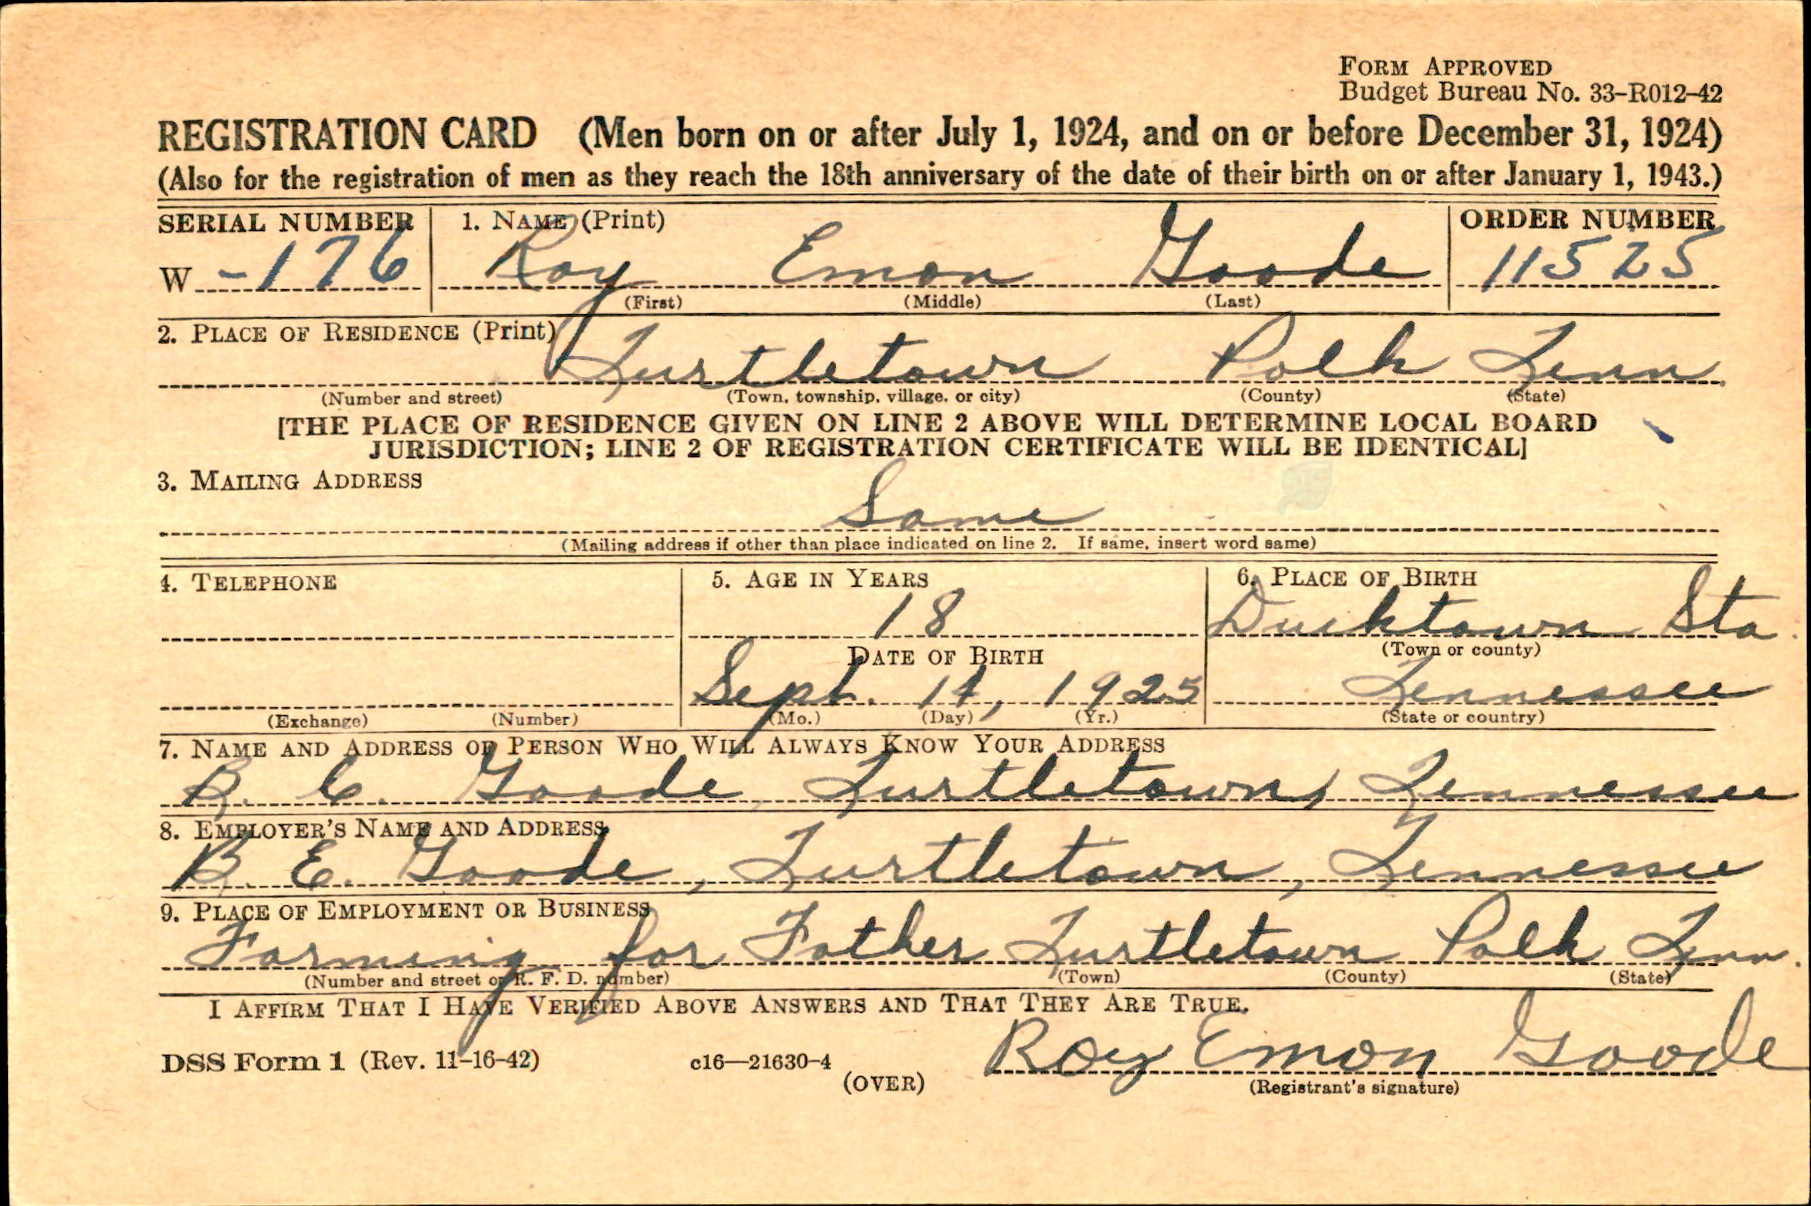 FORM APPROVED
Budget Bureau No. 33-R012-42
REGISTRATION CARD (Men born on or after July 1, 1924, and on or before December 31, 1924)
(Also for the registration of men as they reach the 18th anniversary of the date of their birth on or after January 1, 1943.)
SERIAL NUMBER 1. NAME (Print) ORDER NUMBER
W -176 Roy Emon Goode 11525
(First) (Middle) (Last)
2. PLACE OF RESIDENCE (Print)
Turtletown Polk Tenn.
(Number and street) (Town, township, village, or city) (County) (State)
[THE PLACE OF RESIDENCE GIVEN ON LINE 2 ABOVE WILL DETERMINE LOCAL BOARD
JURISDICTION; LINE 2 OF REGISTRATION CERTIFICATE WILL BE IDENTICAL]
3. MAILING ADDRESS
Same
(Mailing address if other than place indicated on line 2. If same, insert word same)
4. TELEPHONE 5. AGE IN YEARS 6. PLACE OF BIRTH
18 Ducktown Sta.
DATE OF BIRTH (Town or county)
Sept. 14, 1925 Tennessee
(Exchange) (Number) (Mo.) (Day) (Yr.) (State or country)
7. NAME AND ADDRESS OF PERSON WHO WILL ALWAYS KNOW YOUR ADDRESS
Goode, Turtletown, Tennessee
8. EMPLOYER'S NAME AND ADDRESS
B. E. Goode, Turtletown, Tennessee
9. PLACE OF EMPLOYMENT OR BUSINESS
Farming for Father Turtletown Polk Tenn.
(Number and street or R. F. D. number) (Town) (County) (State)
I AFFIRM THAT I HAVE VERIFIED ABOVE ANSWERS AND THAT THEY ARE TRUE.
DSS Form 1 (Rev. 11-16-42) c16—21630-4 (OVER) Roy Emon Goode
(Registrant's signature)